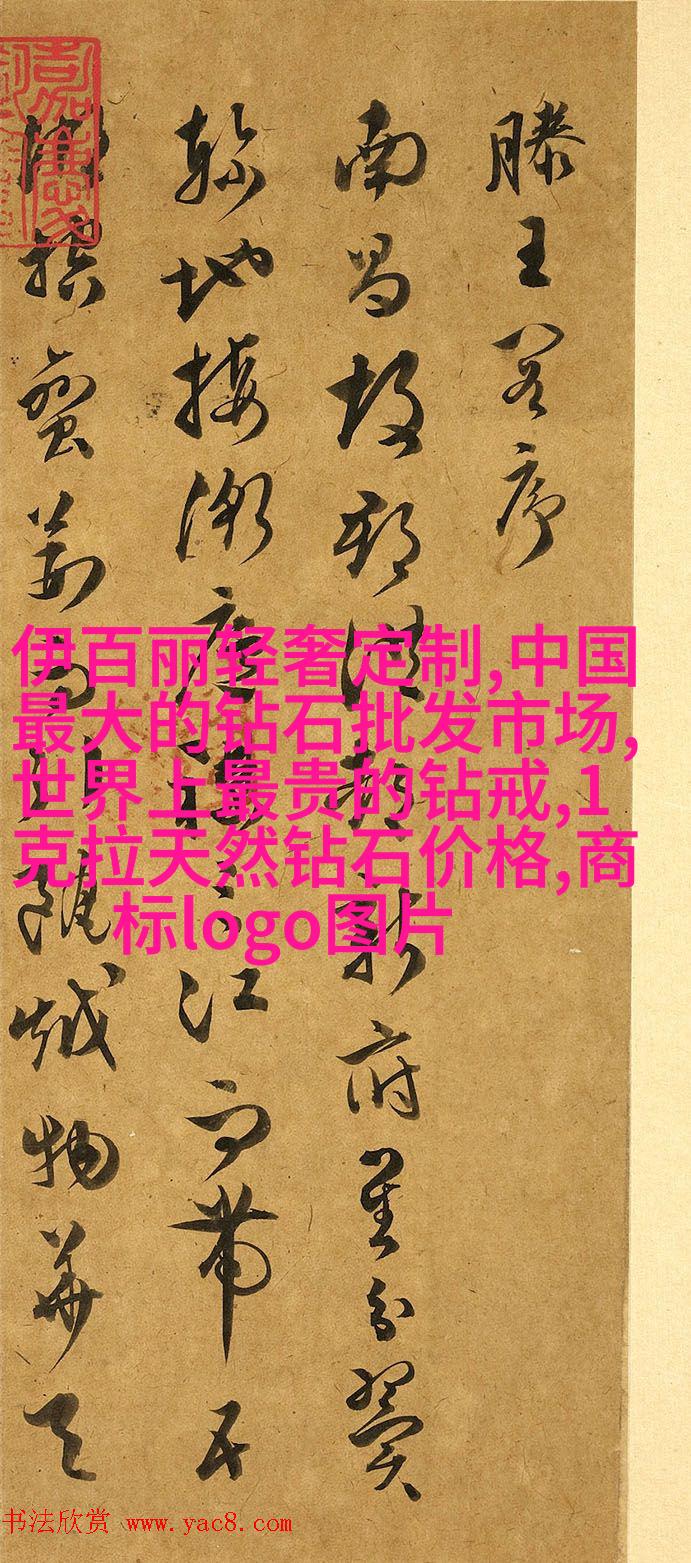 滕王閣序
南昌故郡洪都新府星分翼
軫地接衡廬襟三江而帶五
湖控蠻荊而引甌越物華天
伊百丽轻奢定制,中国
最大的钻石批发市场,
世界上最贵的钻戒,1
克拉天然钻石价格,商
标logo图片
书法欣赏 www.yac8.com